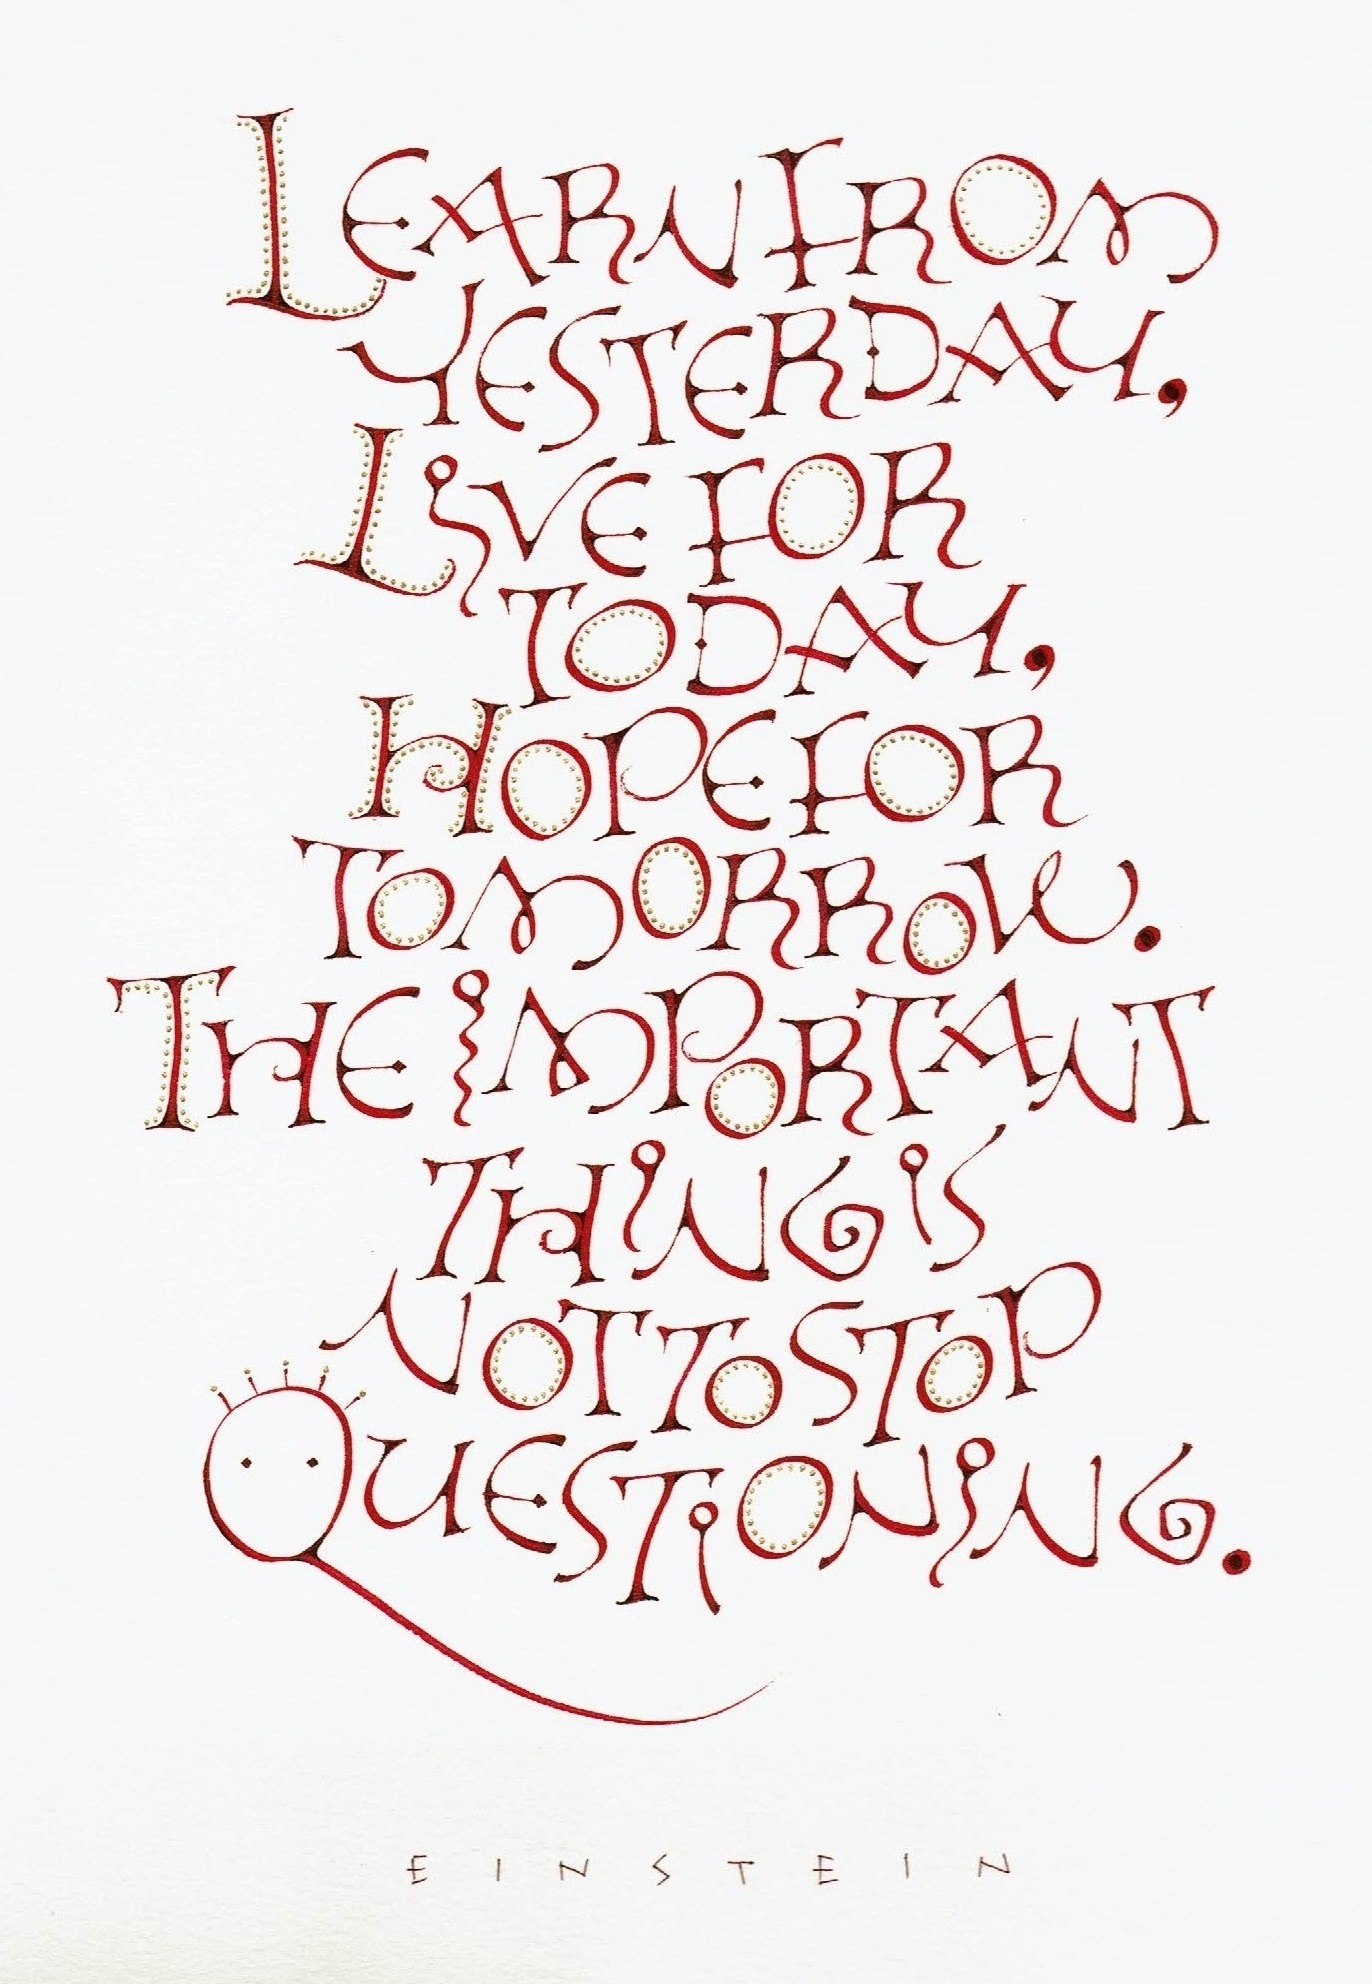 Learn from
Yesterday,
Live for
Today,
Hope for
Tomorrow.
The important
thing is
not to stop
Questioning.
EINSTEIN